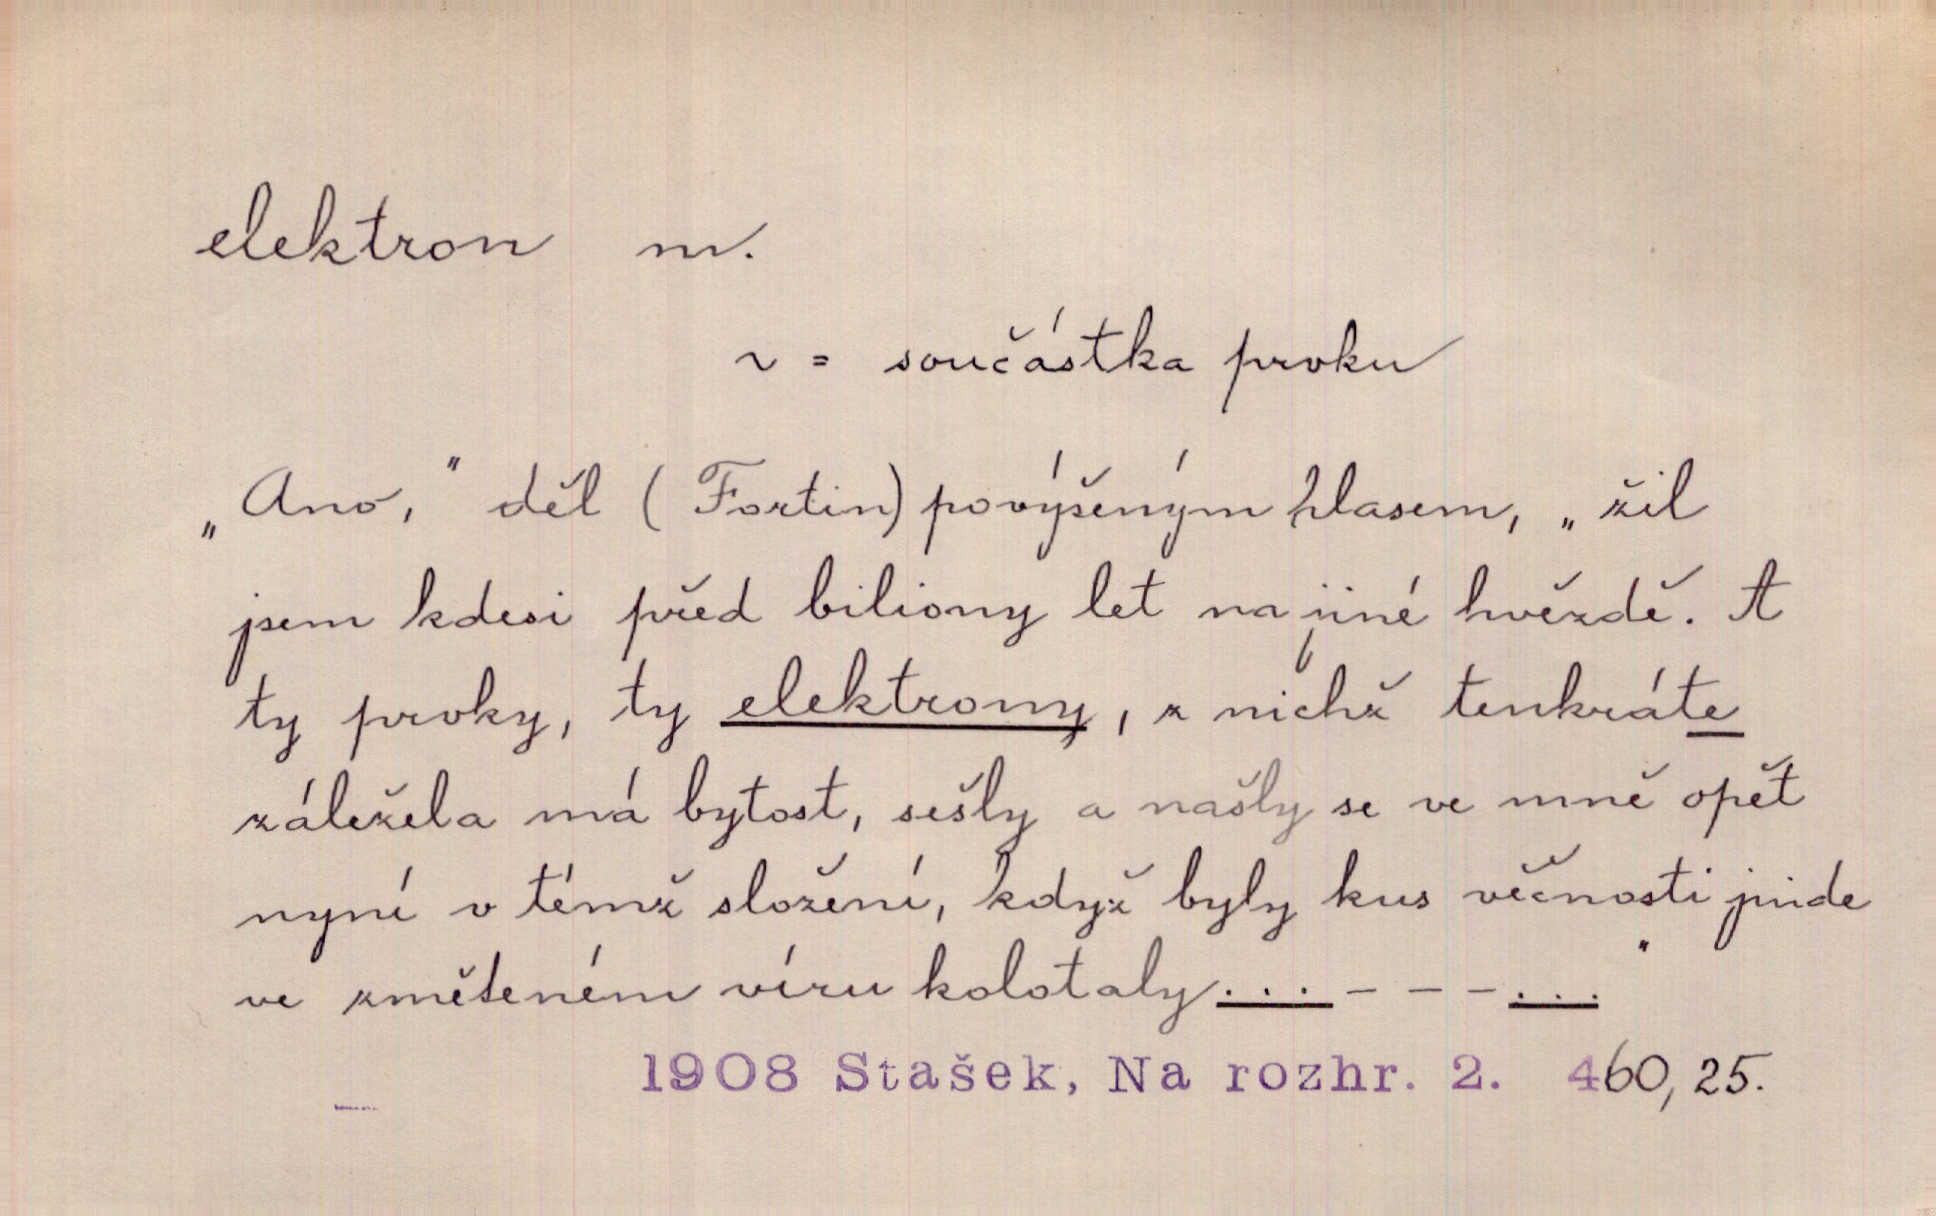 elektron m.
~ = součástka prvku
„Ano,“ děl (Fortin) povýšeným hlasem, „žil
jsem kdesi před biliony let na jiné hvězdě. A
ty prvky, ty elektrony, z nichž tenkráte
záležela má bytost, sešly a našly se ve mně opět
nyní v témž složení, když byly kus věčnosti jinde
ve změteném víru kolotaly... - - - ...“
1908 Stašek, Na rozhr. 2. 460, 25.